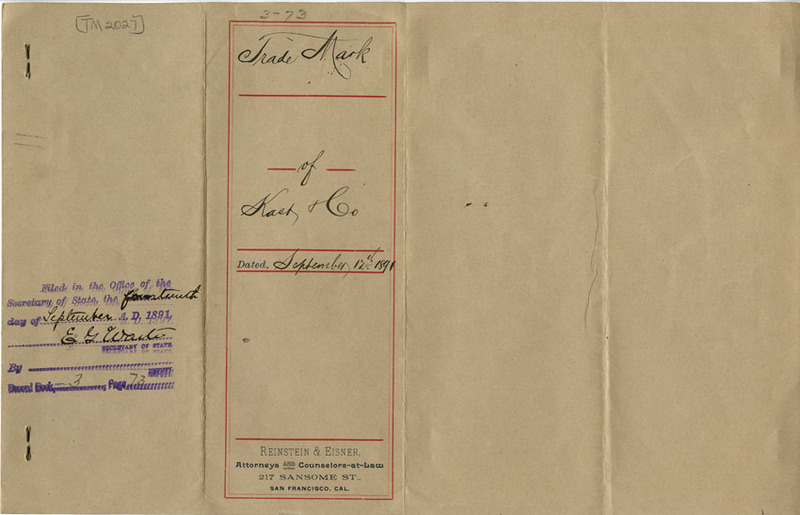 [TM 2027]
3-73
Trade Mark
of
Kast & Co
Dated, September 12th 1891
Filed in the Office of the
Secretary of State, the fourteenth
day of September A.D. 1891
E G Waite
SECRETARY OF STATE
By
Record Book 3, Page 73
REINSTEIN & EISNER,
Attorneys AND Counselors-at-Law
217 SANSOME ST.
SAN FRANCISCO, CAL.